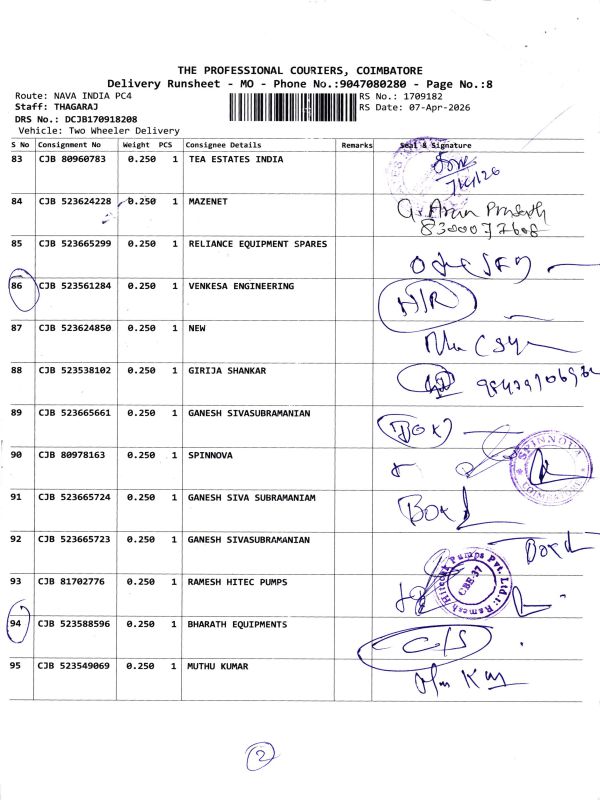 THE PROFESSIONAL COURIERS, COIMBATORE
Delivery Runsheet - MO - Phone No.:9047080280 - Page No.:8
Route: NAVA INDIA PC4 RS No.: 1709182
Staff: THAGARAJ RS Date: 07-Apr-2026
DRS No.: DCJB170918208
Vehicle: Two Wheeler Delivery
S No Consignment No Weight PCS Consignee Details Remarks Seal & Signature
83 CJB 80960783 0.250 1 TEA ESTATES INDIA
7/4/26
84 CJB 523624228 0.250 1 MAZENET G. Arun Prasath
8300077608
85 CJB 523665299 0.250 1 RELIANCE EQUIPMENT SPARES
86 CJB 523561284 0.250 1 VENKESA ENGINEERING N/R
87 CJB 523624850 0.250 1 NEW
88 CJB 523538102 0.250 1 GIRIJA SHANKAR
89 CJB 523665661 0.250 1 GANESH SIVASUBRAMANIAN BOX
90 CJB 80978163 0.250 1 SPINNOVA SPINNOVA COIMBATORE
91 CJB 523665724 0.250 1 GANESH SIVA SUBRAMANIAM Box
92 CJB 523665723 0.250 1 GANESH SIVASUBRAMANIAN Box
93 CJB 81702776 0.250 1 RAMESH HITEC PUMPS Ramesh Hitech Pumps Pvt. Ltd. CBE-37
94 CJB 523588596 0.250 1 BHARATH EQUIPMENTS C/S
95 CJB 523549069 0.250 1 MUTHU KUMAR
2